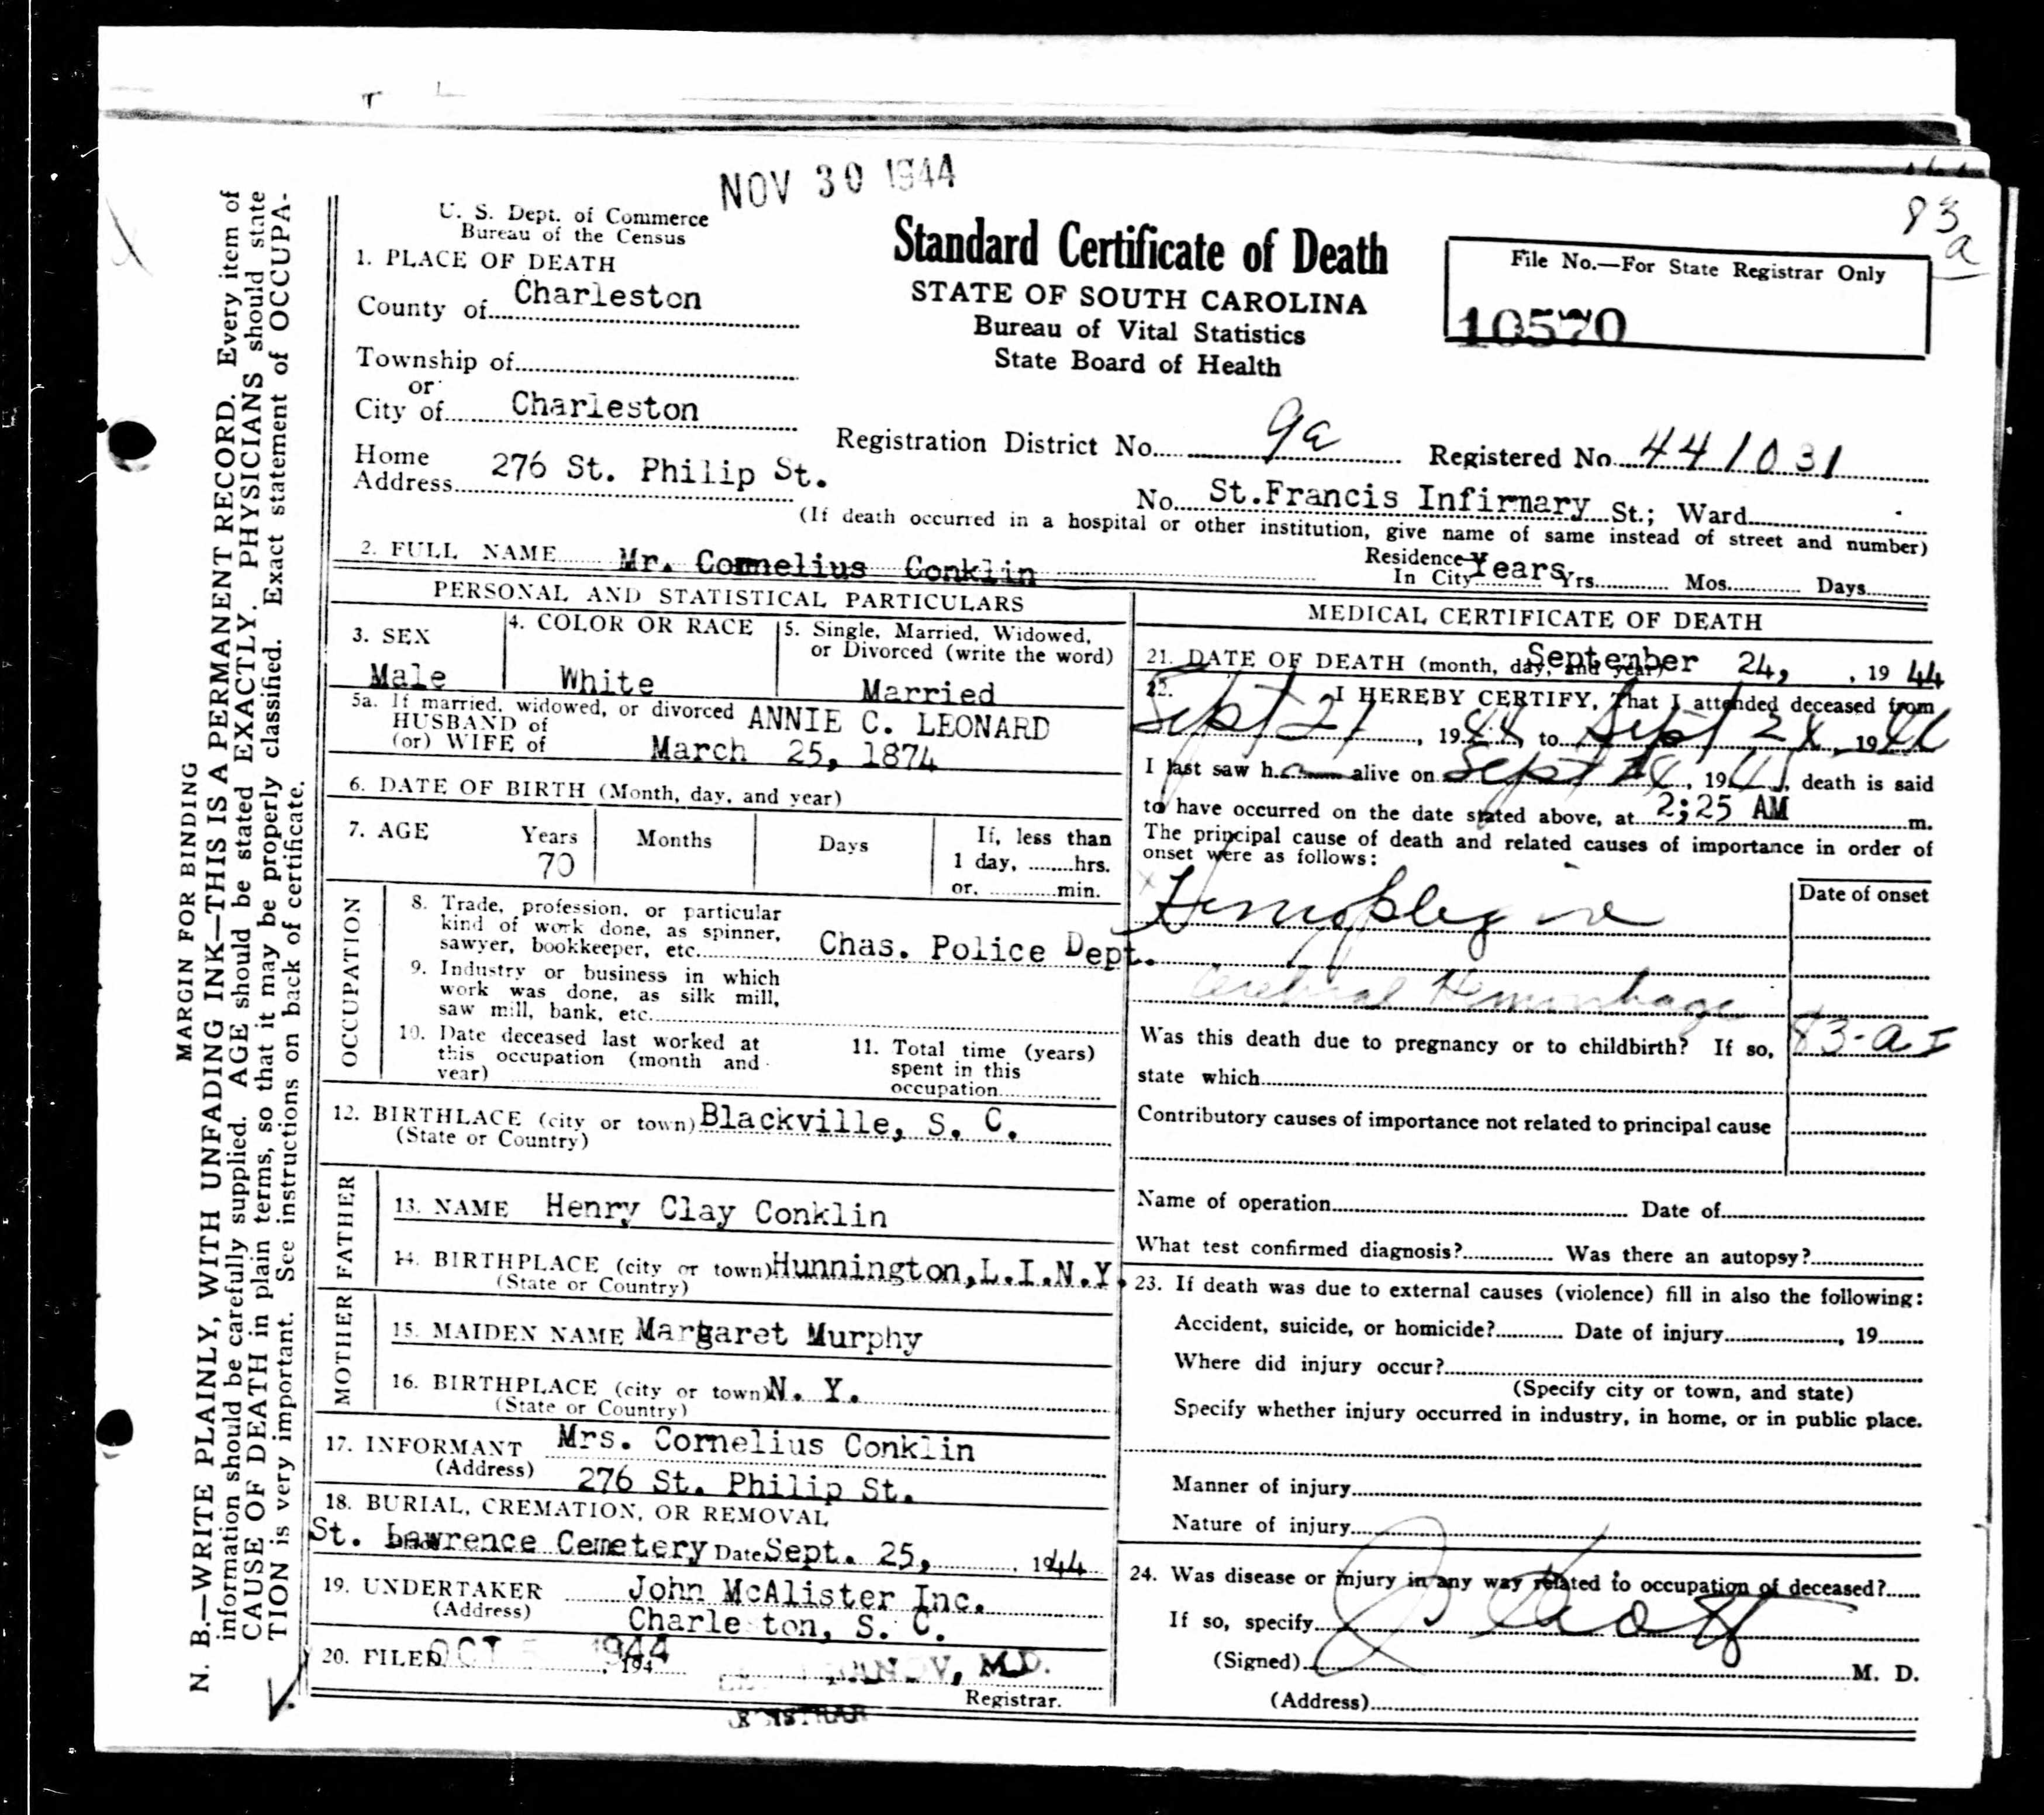 NOV 30 1944
83
a
U. S. Dept. of Commerce
Bureau of the Census
Standard Certificate of Death
STATE OF SOUTH CAROLINA
Bureau of Vital Statistics
State Board of Health
File No.—For State Registrar Only
10570
1. PLACE OF DEATH
County of Charleston
Township of
or
City of Charleston
Registration District No. 9a Registered No. 441031
Home
Address 276 St. Philip St.
No. St.Francis Infirmary St.; Ward
(If death occurred in a hospital or other institution, give name of same instead of street and number)
2. FULL NAME Mr. Cornelius Conklin
Residence
In City Years Yrs. Mos. Days
PERSONAL AND STATISTICAL PARTICULARS
3. SEX
Male
4. COLOR OR RACE
White
5. Single, Married, Widowed,
or Divorced (write the word)
Married
5a. If married, widowed, or divorced ANNIE C. LEONARD
HUSBAND of
(or) WIFE of
March 25, 1874
6. DATE OF BIRTH (Month, day, and year)
7. AGE
Years
70
Months
Days
If, less than
1 day, hrs.
or, min.
OCCUPATION
8. Trade, profession, or particular
kind of work done, as spinner,
sawyer, bookkeeper, etc. Chas. Police Dept.
9. Industry or business in which
work was done, as silk mill,
saw mill, bank, etc.
10. Date deceased last worked at
this occupation (month and
year)
11. Total time (years)
spent in this
occupation
12. BIRTHLACE (city or town) Blackville, S. C.
(State or Country)
FATHER
13. NAME Henry Clay Conklin
14. BIRTHPLACE (city or town) Hunnington,L.I.N.Y.
(State or Country)
MOTHER
15. MAIDEN NAME Margaret Murphy
16. BIRTHPLACE (city or town) N. Y.
(State or Country)
17. INFORMANT Mrs. Cornelius Conklin
(Address) 276 St. Philip St.
18. BURIAL, CREMATION, OR REMOVAL
St. Lawrence Cemetery Date Sept. 25, 1944
19. UNDERTAKER John McAlister Inc.
(Address) Charle ton, S. C.
20. FILED OCT 1944 , 194
M.D.
Registrar.
MEDICAL CERTIFICATE OF DEATH
21. DATE OF DEATH (month, day, and year) September 24, , 19 44
22. I HEREBY CERTIFY, That I attended deceased from
Sept 21, 19 to Sept 24, 19
I last saw h alive on Sept , 19 , death is said
to have occurred on the date stated above, at 2;25 AM m.
The principal cause of death and related causes of importance in order of
onset were as follows:
Date of onset
Hemiplegia
Cerebral Hemorrhage
83-a I
Was this death due to pregnancy or to childbirth? If so,
state which
Contributory causes of importance not related to principal cause
Name of operation Date of
What test confirmed diagnosis? Was there an autopsy?
23. If death was due to external causes (violence) fill in also the following:
Accident, suicide, or homicide? Date of injury , 19
Where did injury occur?
(Specify city or town, and state)
Specify whether injury occurred in industry, in home, or in public place.
Manner of injury
Nature of injury
24. Was disease or injury in any way related to occupation of deceased?
If so, specify
(Signed) M. D.
(Address)
MARGIN FOR BINDING
N. B.—WRITE PLAINLY, WITH UNFADING INK—THIS IS A PERMANENT RECORD. Every item of
information should be carefully supplied. AGE should be stated EXACTLY. PHYSICIANS should state
CAUSE OF DEATH in plain terms, so that it may be properly classified. Exact statement of OCCUPA-
TION is very important. See instructions on back of certificate.